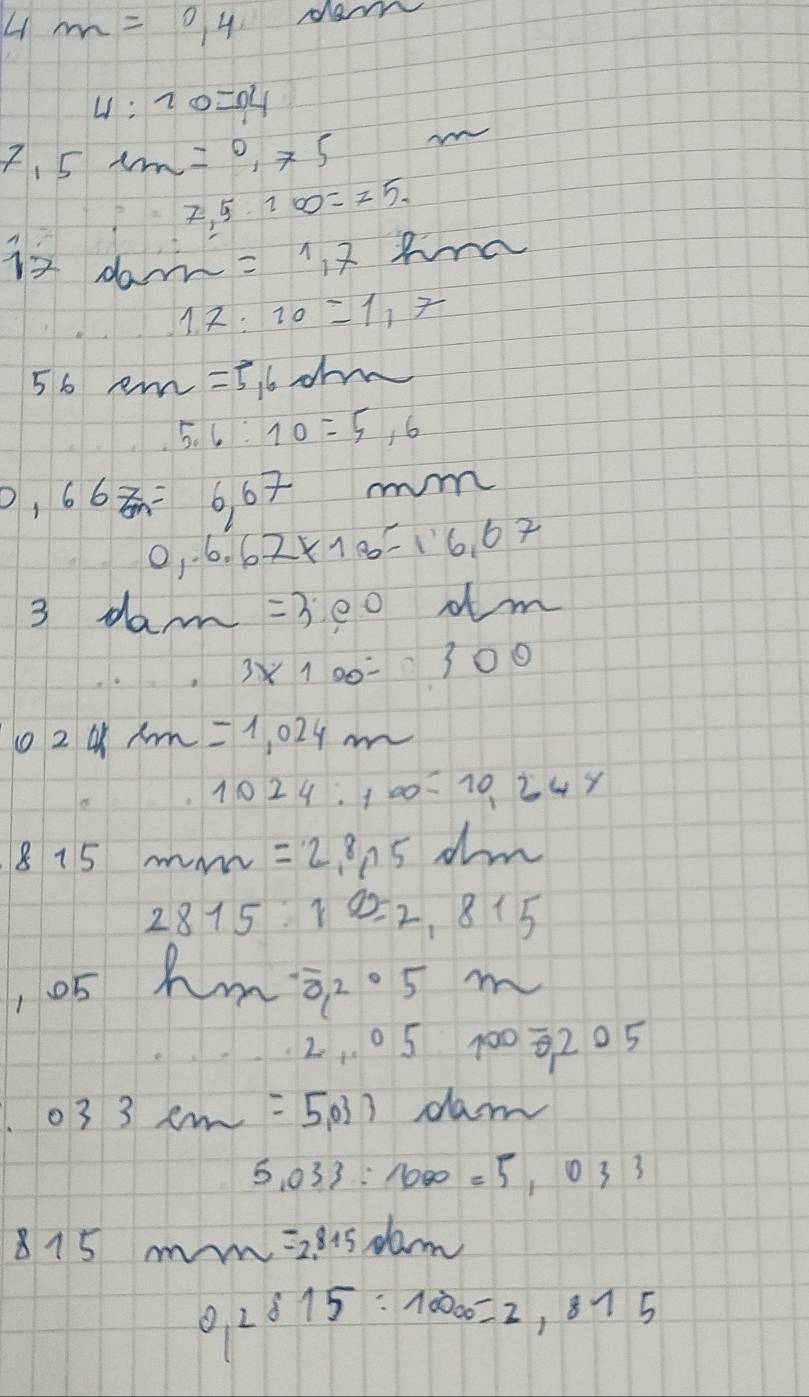 4 m = 0,4 dam
4 : 10 = 0,4
7,5 cm = 0,75 m
7,5 : 100 = 75.
17 dam = 1,7 hm
17 : 10 = 1,7
56 cm = 5,6 dm
5.6 : 10 = 5,6
0,667 = 6,67 mm
0,.6.67 x 10 = 6,67
3 dam = 300 dm
3 x 100 = 300
024 cm = 1,024 m
1024 : 100 = 10,24
815 mm = 2,815 dm
2815 : 100 = 2,815
,05 hm = 0,205 m
2,05 100 = 0,205
. 033 cm = 5,033 dam
5,033 : 1000 = 5,033
815 mm = 2,815 dam
0,2815 : 10000 = 2,815